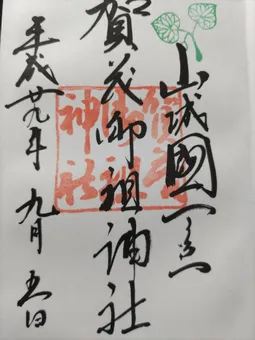 山城國一之宮
賀茂御祖神社
平成廿九年 九月 五日
賀茂御祖神社